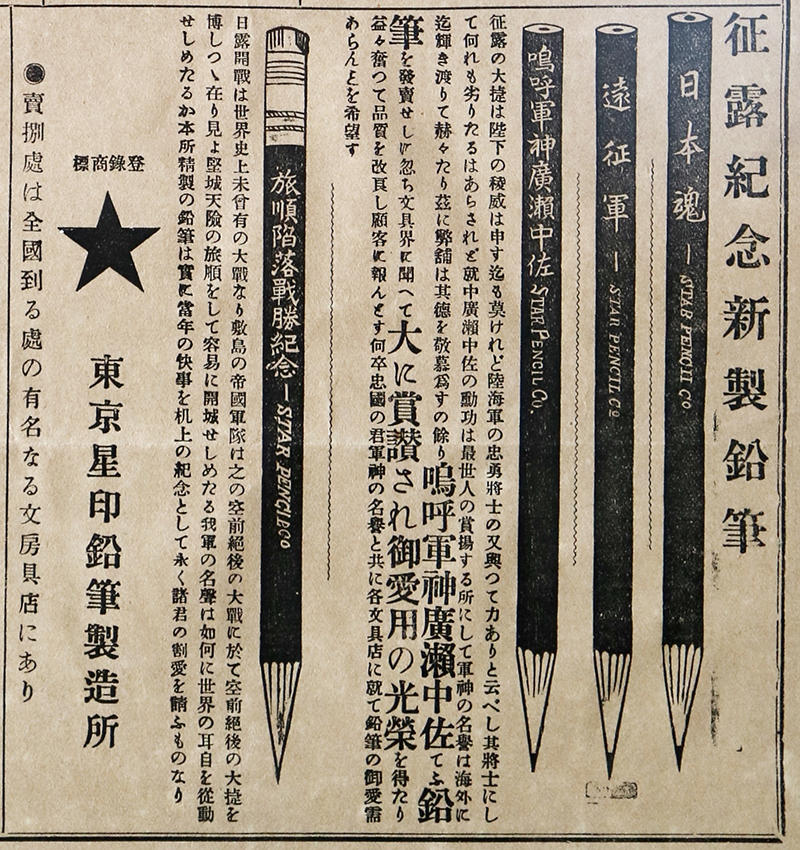 征露紀念新製鉛筆
日本魂ーSTAR PENCIL CO
遠征軍ーSTAR PENCIL Co
嗚呼軍神廣瀬中佐 STAR PENCIL Co.
征露の大捷は陛下の稜威は申す迄も莫けれど陸海軍の忠勇將士の又與つて力ありと云べし其將士にし
て何れも劣りたるはあらされど就中廣瀬中佐の勳功は最世人の賞揚する所にして軍神の名譽は海外に
迄輝き渡りて赫々たり茲に弊舗は其德を敬慕爲すの餘り嗚呼軍神廣瀬中佐てふ鉛
筆を發賣せしに忽ち文具界に聞へて大に賞讃され御愛用の光榮を得たり
益々奮つて品質を改良し顧客に報んとす何卒忠國の君軍神の名譽と共に各文具店に就て鉛筆の御愛需
あらんとを希望す
旅順陷落戰勝紀念ーSTAR PENCIL CO
日露開戰は世界史上未曾有の大戰なり敷島の帝國軍隊は之の空前絕後の大戰に於て空前絕後の大捷を
博しつゝ在り見よ堅城天險の旅順をして容易に開城せしめたる我軍の名聲は如何に世界の耳目を從動
せしめたるか本所精製の鉛筆は實に當年の快事を机上の紀念として永く諸君の割愛を請ふものなり
標商錄登
東京星印鉛筆製造所
●賣捌處は全國到る處の有名なる文房具店にあり